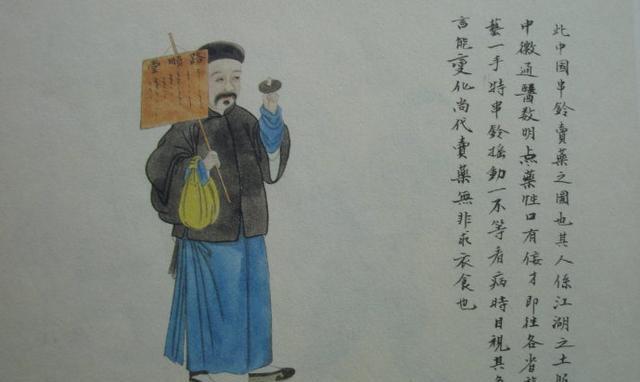 此中国串鈴賣藥之圖也其人係江湖之士
中徽通醫数明点藥性口有佞才即往各省
藝一手持串鈴搖動一不等看病時目視其
言能變化尚代賣藥無非求衣食也
路順堂